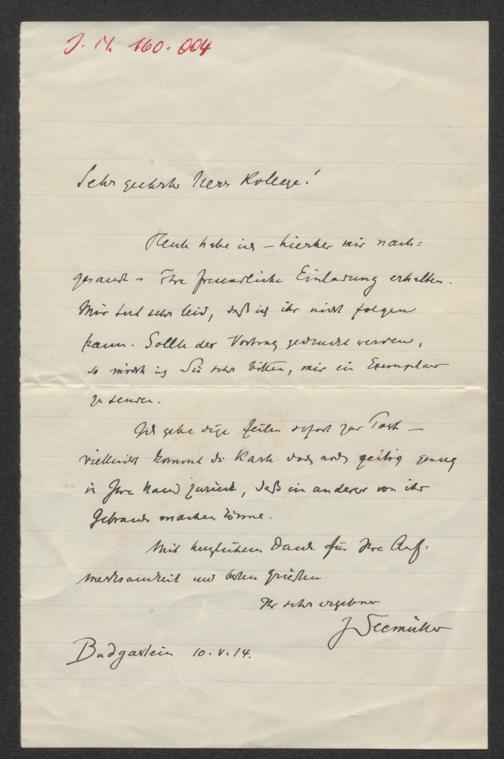 J. N. 160.004
Sehr geehrter Herr Kollege!
Heute habe ich – hierher mir nach=
gesandt – Ihre freundliche Einladung erhalten.
Mir tut sehr leid, daß ich ihr nicht folgen
kann. Sollte der Vortrag gedruckt werden,
so möcht ich Sie sehr bitten, mir ein Exemplar
zu senden.
Ich gebe diese Zeilen sofort zur Post –
vielleicht kommt die Karte doch noch zeitig genug
in Ihre Hand zurück, daß ein anderer von ihr
Gebrauch machen könne.
Mit herzlichem Dank für Ihre Auf=
merksamkeit und besten Grüßen
Ihr sehr ergebener
J Seemüller
Badgastein 10.V.14.